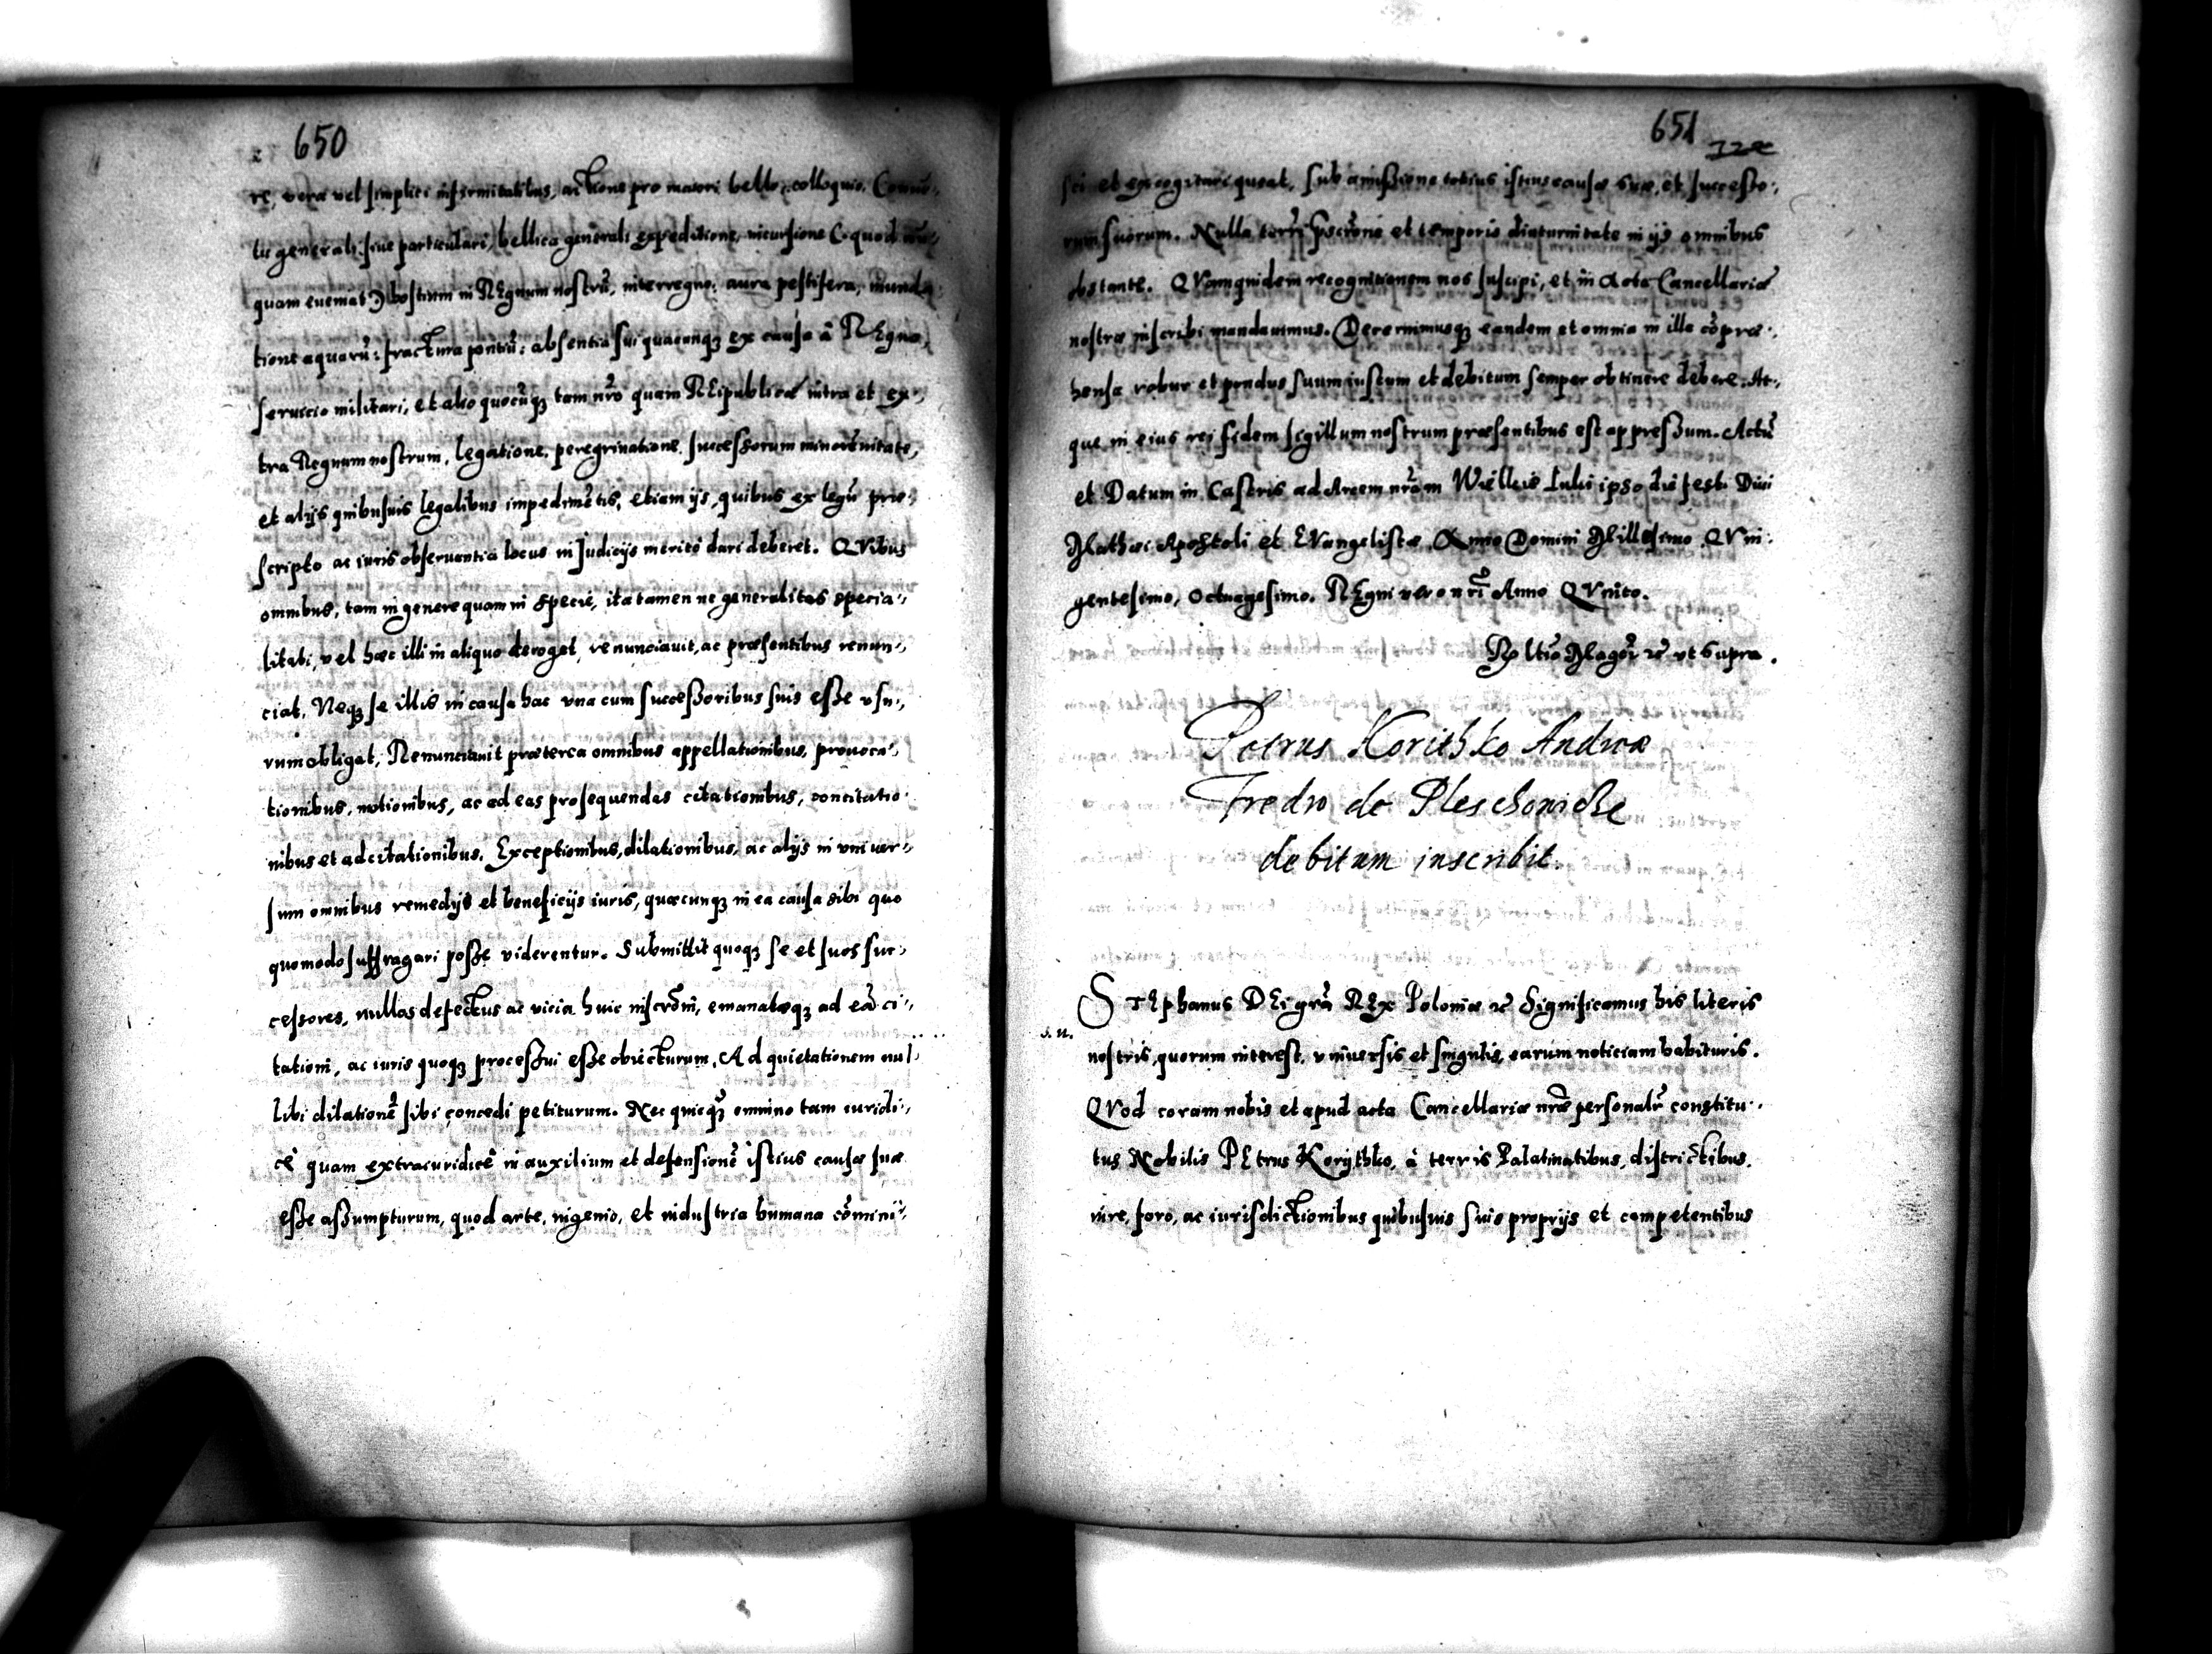 650
re, vera vel simplici infirmitatibus, actione pro maiori, bello, colloquio, Conuē-
tu generali siue particulari, bellica generali expeditione, incursione (quod nū-
quam eueniat) hostium in REgnum nostrū, interregno, aura pestifera, inunda-
tione aquarū, fractura pontiū, absentia sui quacunq3 ex causa à REgno,
seruicio militari, et alio quocūq3 tam nrō quam REipublicæ intra et ex-
tra Regnum nostrum, legatione, peregrinatione, successorum minorēnitate,
et alijs quibusuis legalibus impedimētis, etiam ijs, quibus ex legū præ-
scripto ac iuris obseruantia locus in Judicijs meritò dari deberet. QVibus
omnibus, tam in genere quam in specie, ita tamen ne generalitas specia-
litati, vel hæc illi in aliquo deroget, renunciauit, ac præsentibus renun-
ciat. Neq3 se illis in causa hac vna cum successoribus suis esse vsu-
rum obligat. Renunciauit præterea omnibus appellationibus, prouoca-
tionibus, motionibus, ac ad eas prosequendas citationibus, concitatio-
nibus et adcitationibus. Exceptionibus, dilationibus, ac alijs in vniuer-
sum omnibus remedijs et beneficijs iuris, quæcunq3 in ea causa sibi quo
quomodo suffragari posse viderentur. Submittit quoq3 se et suos suc-
cessores, nullos defectus ac vicia huic inscrōni, emanatæq3 ad eā ci-
tationi, ac iuris quoq3 processui esse obiecturum. Ad quietationem nul-
libi dilationē sibi concedi petiturum. Nec quicq3 omnino tam iuridi-
cè quam extraiuridicè in auxilium et defensionē istius causæ suæ
esse assumpturum, quod arte, ingenio, et industria humana cōmini-
651
sci et excogitari queat, sub amissione totius istius causæ suæ, et successo-
rum suorum. Nulla terrī pscrōne et temporis diuturnitate in ijs omnibus
obstante. QVam quidem recognitionem nos suscipi, et in Acta Cancellariæ
nostræ inscribi mandauimus. Decernimusq3 eandem et omnia in illa cōpræ-
hensa robur et pondus suum iustum et debitum semper obtinere debere. At-
que in eius rei fidem sigillum nostrum præsentibus est appressum. Actū
et Datum in Castris ad Arcem nrām Wielkie Luki ipso die festi Diui
Mathæi Apostoli et EVangelistæ Anno Domini Millesimo QVin-
gentesimo, Octuagesimo. REgni vero nrī Anno QVinto.
Rltio Magcī et vt supra.
Petrus Korithko Andreæ
Fredro de Pleschowicze
debitum inscribit.
STEphanus DEi grā REx Poloniæ et Significamus his literis
nostris, quorum interest, vniuersis et singulis, earum noticiam habituris.
QVod coram nobis et apud acta Cancellariæ nræ personalr constitu-
tus Nobilis PEtrus Korythko, à terris Palatinatibus, districtibus,
iure, foro, ac iurisdictionibus quibusuis suis proprijs et competentibus